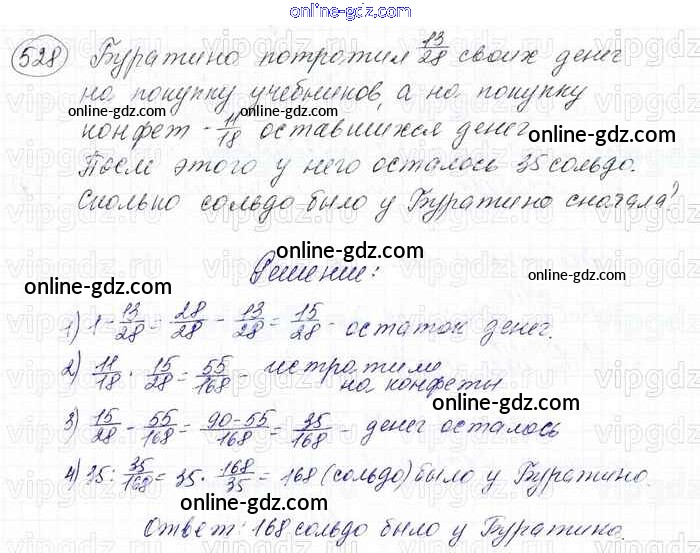 online-gdz.com
528 Буратино потратил 13/28 своих денег
на покупку учебников, а на покупку
online-gdz.com online-gdz.com
конфет - 11/18 оставшихся денег.
online-gdz.com
После этого у него осталось 35 сольдо.
Сколько сольдо было у Буратино сначала?
online-gdz.com
Решение:
online-gdz.com online-gdz.com
1) 1 - 13/28 = 28/28 - 13/28 = 15/28 - остаток денег.
2) 11/18 · 15/28 = 55/168 - истратили
на конфеты
online-gdz.com
3) 15/28 - 55/168 = 90-55/168 = 35/168 - денег осталось
online-gdz.com
4) 35 : 35/168 = 35 · 168/35 = 168 (сольдо) было у Буратино.
online-gdz.com online-gdz.com
Ответ: 168 сольдо было у Буратино.
online-gdz.com